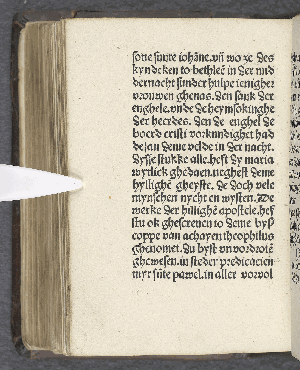 sone sunte iohãne. vñ wo xc des
kyndeken to bethleẽ in der mid
dernacht sunder hulpe ienigher
vrouwen ghenas. den sank der
enghele. vnde de heymsokinghe
der heerdes. den de enghel de
boerd cristi vorkundighet had
de jan deme velde in der nacht.
dysse stukke alle. heft dy maria
wytlick ghedaen. neghest deme
hyllighẽ gheyste. de doch vele
mynschen nycht en wysten. De
werke der hillighẽ apostele. hef
stu ok ghescreuen to deme bys
coppe van achayen theophilus
ghenomet. du byst vnvordrotẽ
ghewesen. in steder predicacien
myt sũte pawel. in aller vorvol